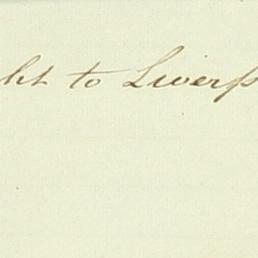 ht to Liverp